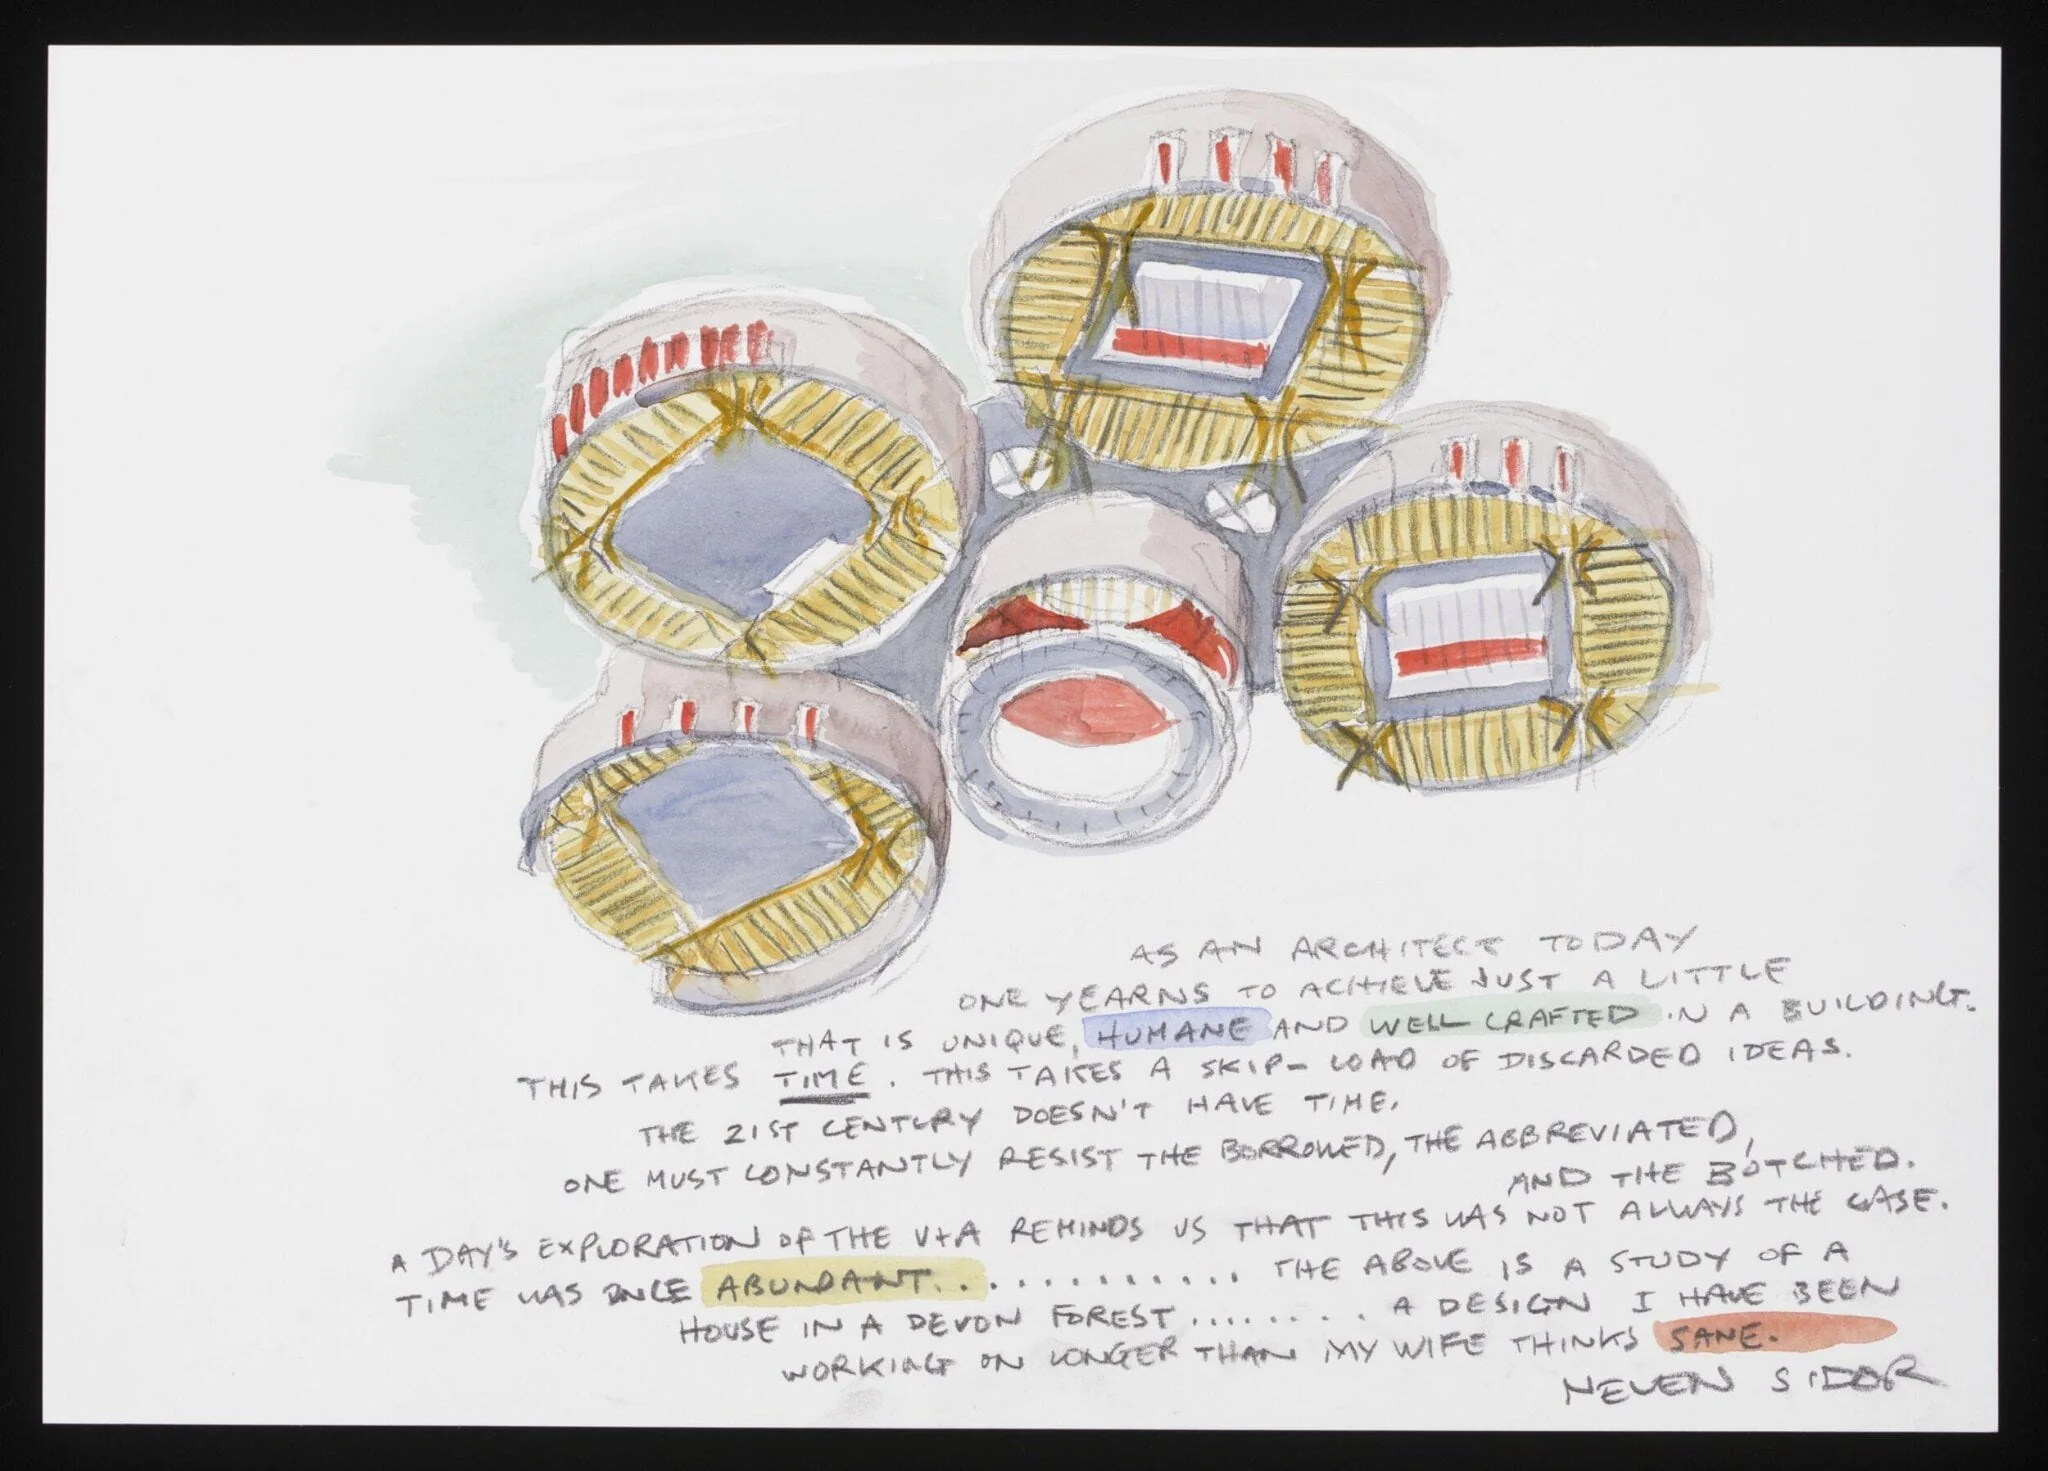 AS AN ARCHITECT TODAY
ONE YEARNS TO ACHIEVE JUST A LITTLE
THAT IS UNIQUE, HUMANE AND WELL CRAFTED IN A BUILDING.
THIS TAKES TIME. THIS TAKES A SKIP-LOAD OF DISCARDED IDEAS.
THE 21ST CENTURY DOESN'T HAVE TIME.
ONE MUST CONSTANTLY RESIST THE BORROWED, THE ABBREVIATED,
AND THE BOTCHED.
A DAY'S EXPLORATION OF THE V+A REMINDS US THAT THIS WAS NOT ALWAYS THE CASE.
TIME WAS ONCE ABUNDANT............. THE ABOVE IS A STUDY OF A
HOUSE IN A DEVON FOREST........ A DESIGN I HAVE BEEN
WORKING ON LONGER THAN MY WIFE THINKS SANE.
NEVEN SIDOR